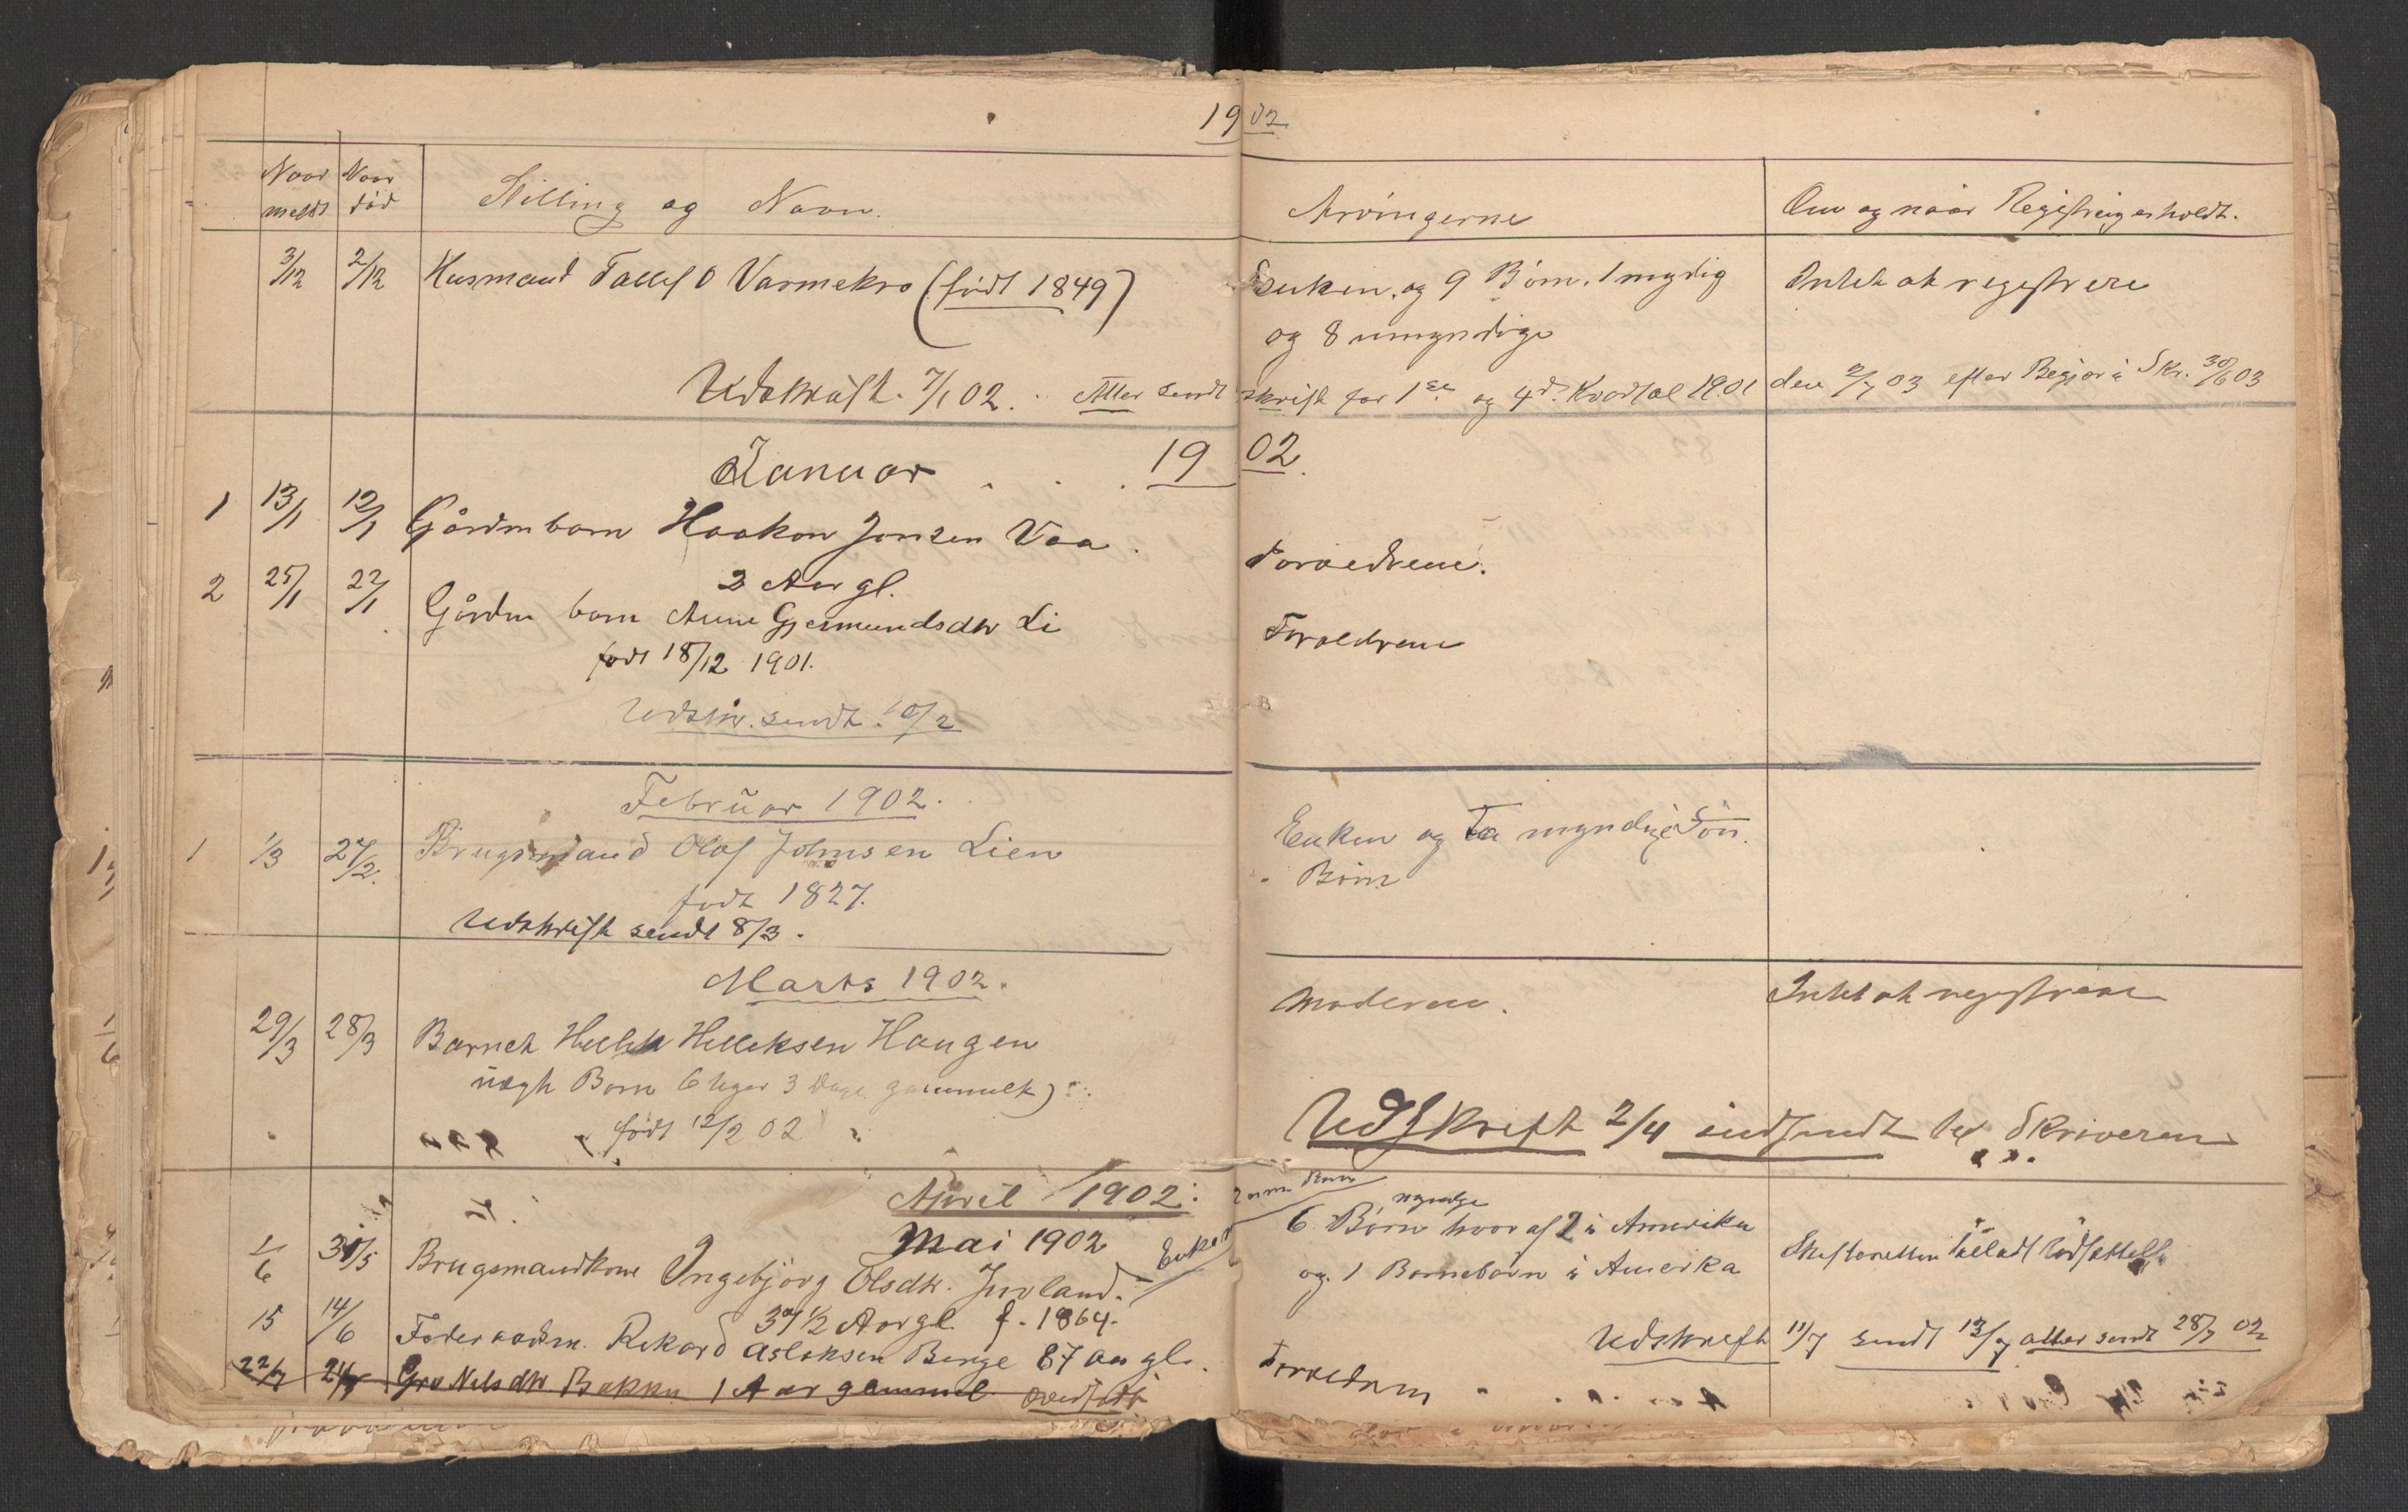 1902
Naar meldt
Naar död
Stilling og Navn.
Arvingerne
Om og naar Registreing er holdt.
3/12 2/12 Husmand Tallef O Varmekro (födt 1849)
Enken, og 9 Börn, 1 myndig
og 8 umyndige
Intet at registrere
Udskrift. 7/1 02. Atter sendt skrift for 1ste og 4de Kvartal 1901 den 2/7 03 efter Begjær i Skr. 30/6 03
Januar 1902.
1 13/1 12/1 Gårdm barn Haakon Jonsen Vaa.
2 Aar gl.
Foraeldrene.
2 25/1 22/1 Gårdm barn Anne Gjermundsdtr Li
födt 18/12 1901.
Foraeldrene
Udskr. sendt. 10/2
Februar 1902.
1 1/3 27/2. Brugsmand Olaf Johnsen Lien
födt 1827.
Enken og myndige Sön.
Börn
Udskrift sendt 8/3.
Marts 1902.
29/3 28/3 Barnet Hellek Helleksen Haugen
uægte Barn 6 Uger 3 Dage gammelt)
födt 12/2 02
Moderen.
Intet at registrere
Udskrift 2/4 indsendt til Skriveren
April 1902:
Mai 1902
1/6 31/5 Brugsmandkone Ingebjörg Olsdtr. Juvland. - Enkem
37 1/2 Aar gl. f. 1864.
myndige
6 Börn hvoraf 2 i Amerika
og 1 Barnebarn i Amerika
Skifteretten
15 14/6 Föderaadsm. Rikard Aslaksen Berge 87 aar gl.
Udskrift 11/7 sendt 12/7 atter sendt 28/7 02
22/7 21/7 Gro Nilsdtr Bakka 1 Aar gammel overfört
Foraeldrene